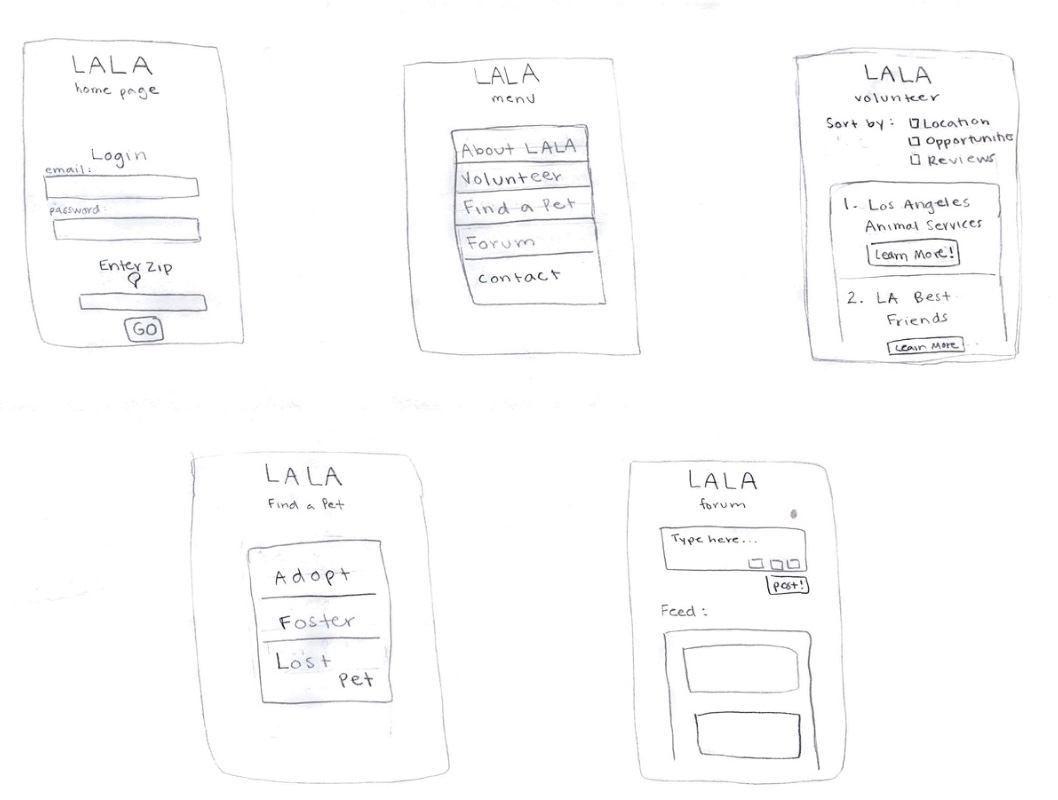 LALA
home page
Login
email:
password:
Enter Zip
GO
LALA
menu
About LALA
Volunteer
Find a Pet
Forum
Contact
LALA
volunteer
Sort by: Location
Opportunities
Reviews
1. Los Angeles
Animal Services
Learn More!
2. LA Best
Friends
Learn More
LALA
Find a Pet
Adopt
Foster
Lost
Pet
LALA
forum
Type here...
post!
Feed: